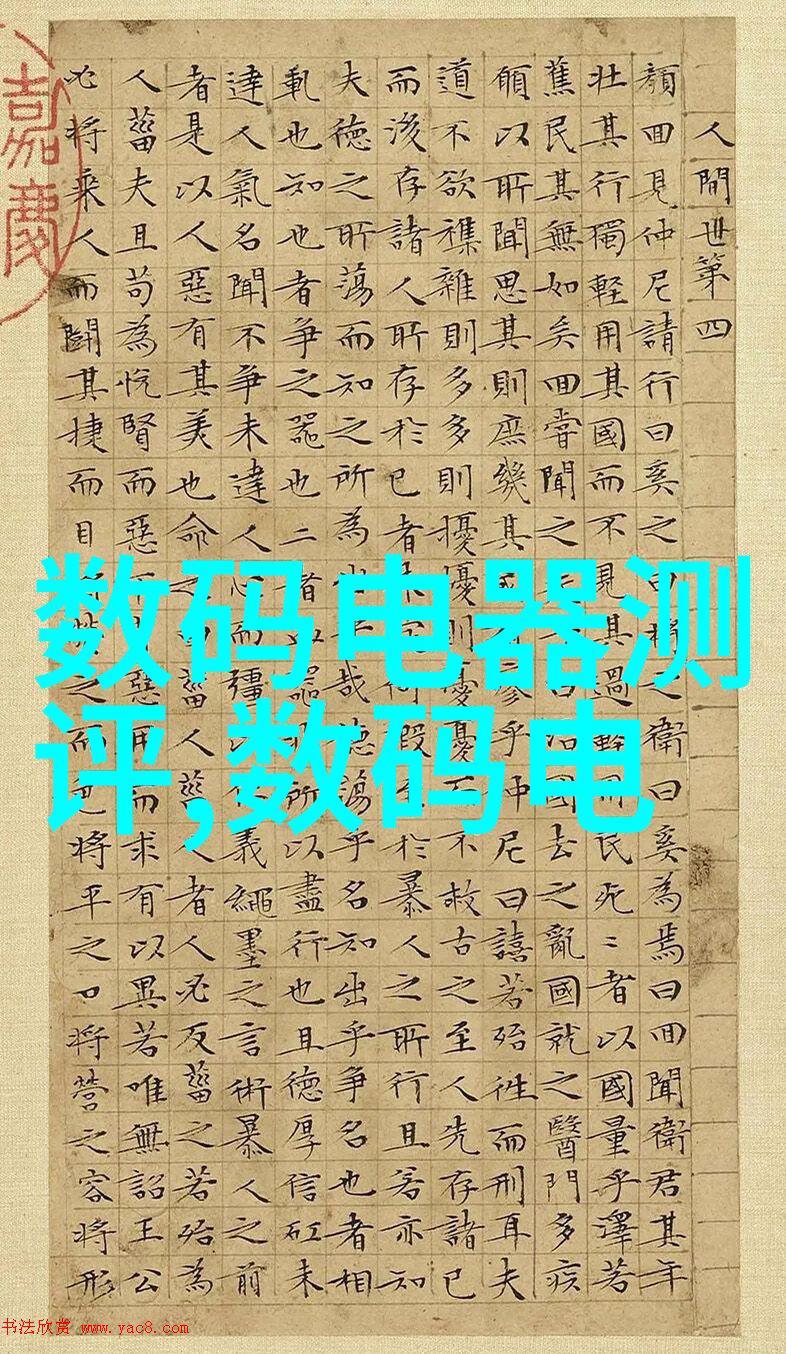 人間世第四
顏囬見仲尼請行曰奚之曰將之衛曰奚為焉曰囬聞衛君其年
壯其行獨輕用其國而不見其過輕用民死〻者以國量乎澤若
蕉民其無如矣囬嘗聞之夫子曰治國去之亂國就之醫門多疾
願以所聞思其則庶幾其國有瘳乎仲尼曰譆若殆徃而刑耳夫
道不欲襍雜則多多則擾擾則憂憂而不救古之至人先存諸己
而後存諸人所存於己者未定何暇至於暴人之所行且若亦知
夫德之所蕩而知之所為出乎哉德蕩乎名知出乎爭名也者相
軋也知也者爭之器也二者凶器非所以盡行也且德厚信矼未
達人氣名聞不爭未達人心而彊以仁義繩墨之言術暴人之前
者是以人惡有其美也命之曰菑人菑人者人必反菑之若殆為
人菑夫且苟為悅賢而惡不肖惡用而求有以異若唯無詔王公
必將乘人而鬭其捷而目將熒之而色將平之口將營之容將形
嘉慶
数码电器测
评,数码电
书法欣赏 www.yac8.com